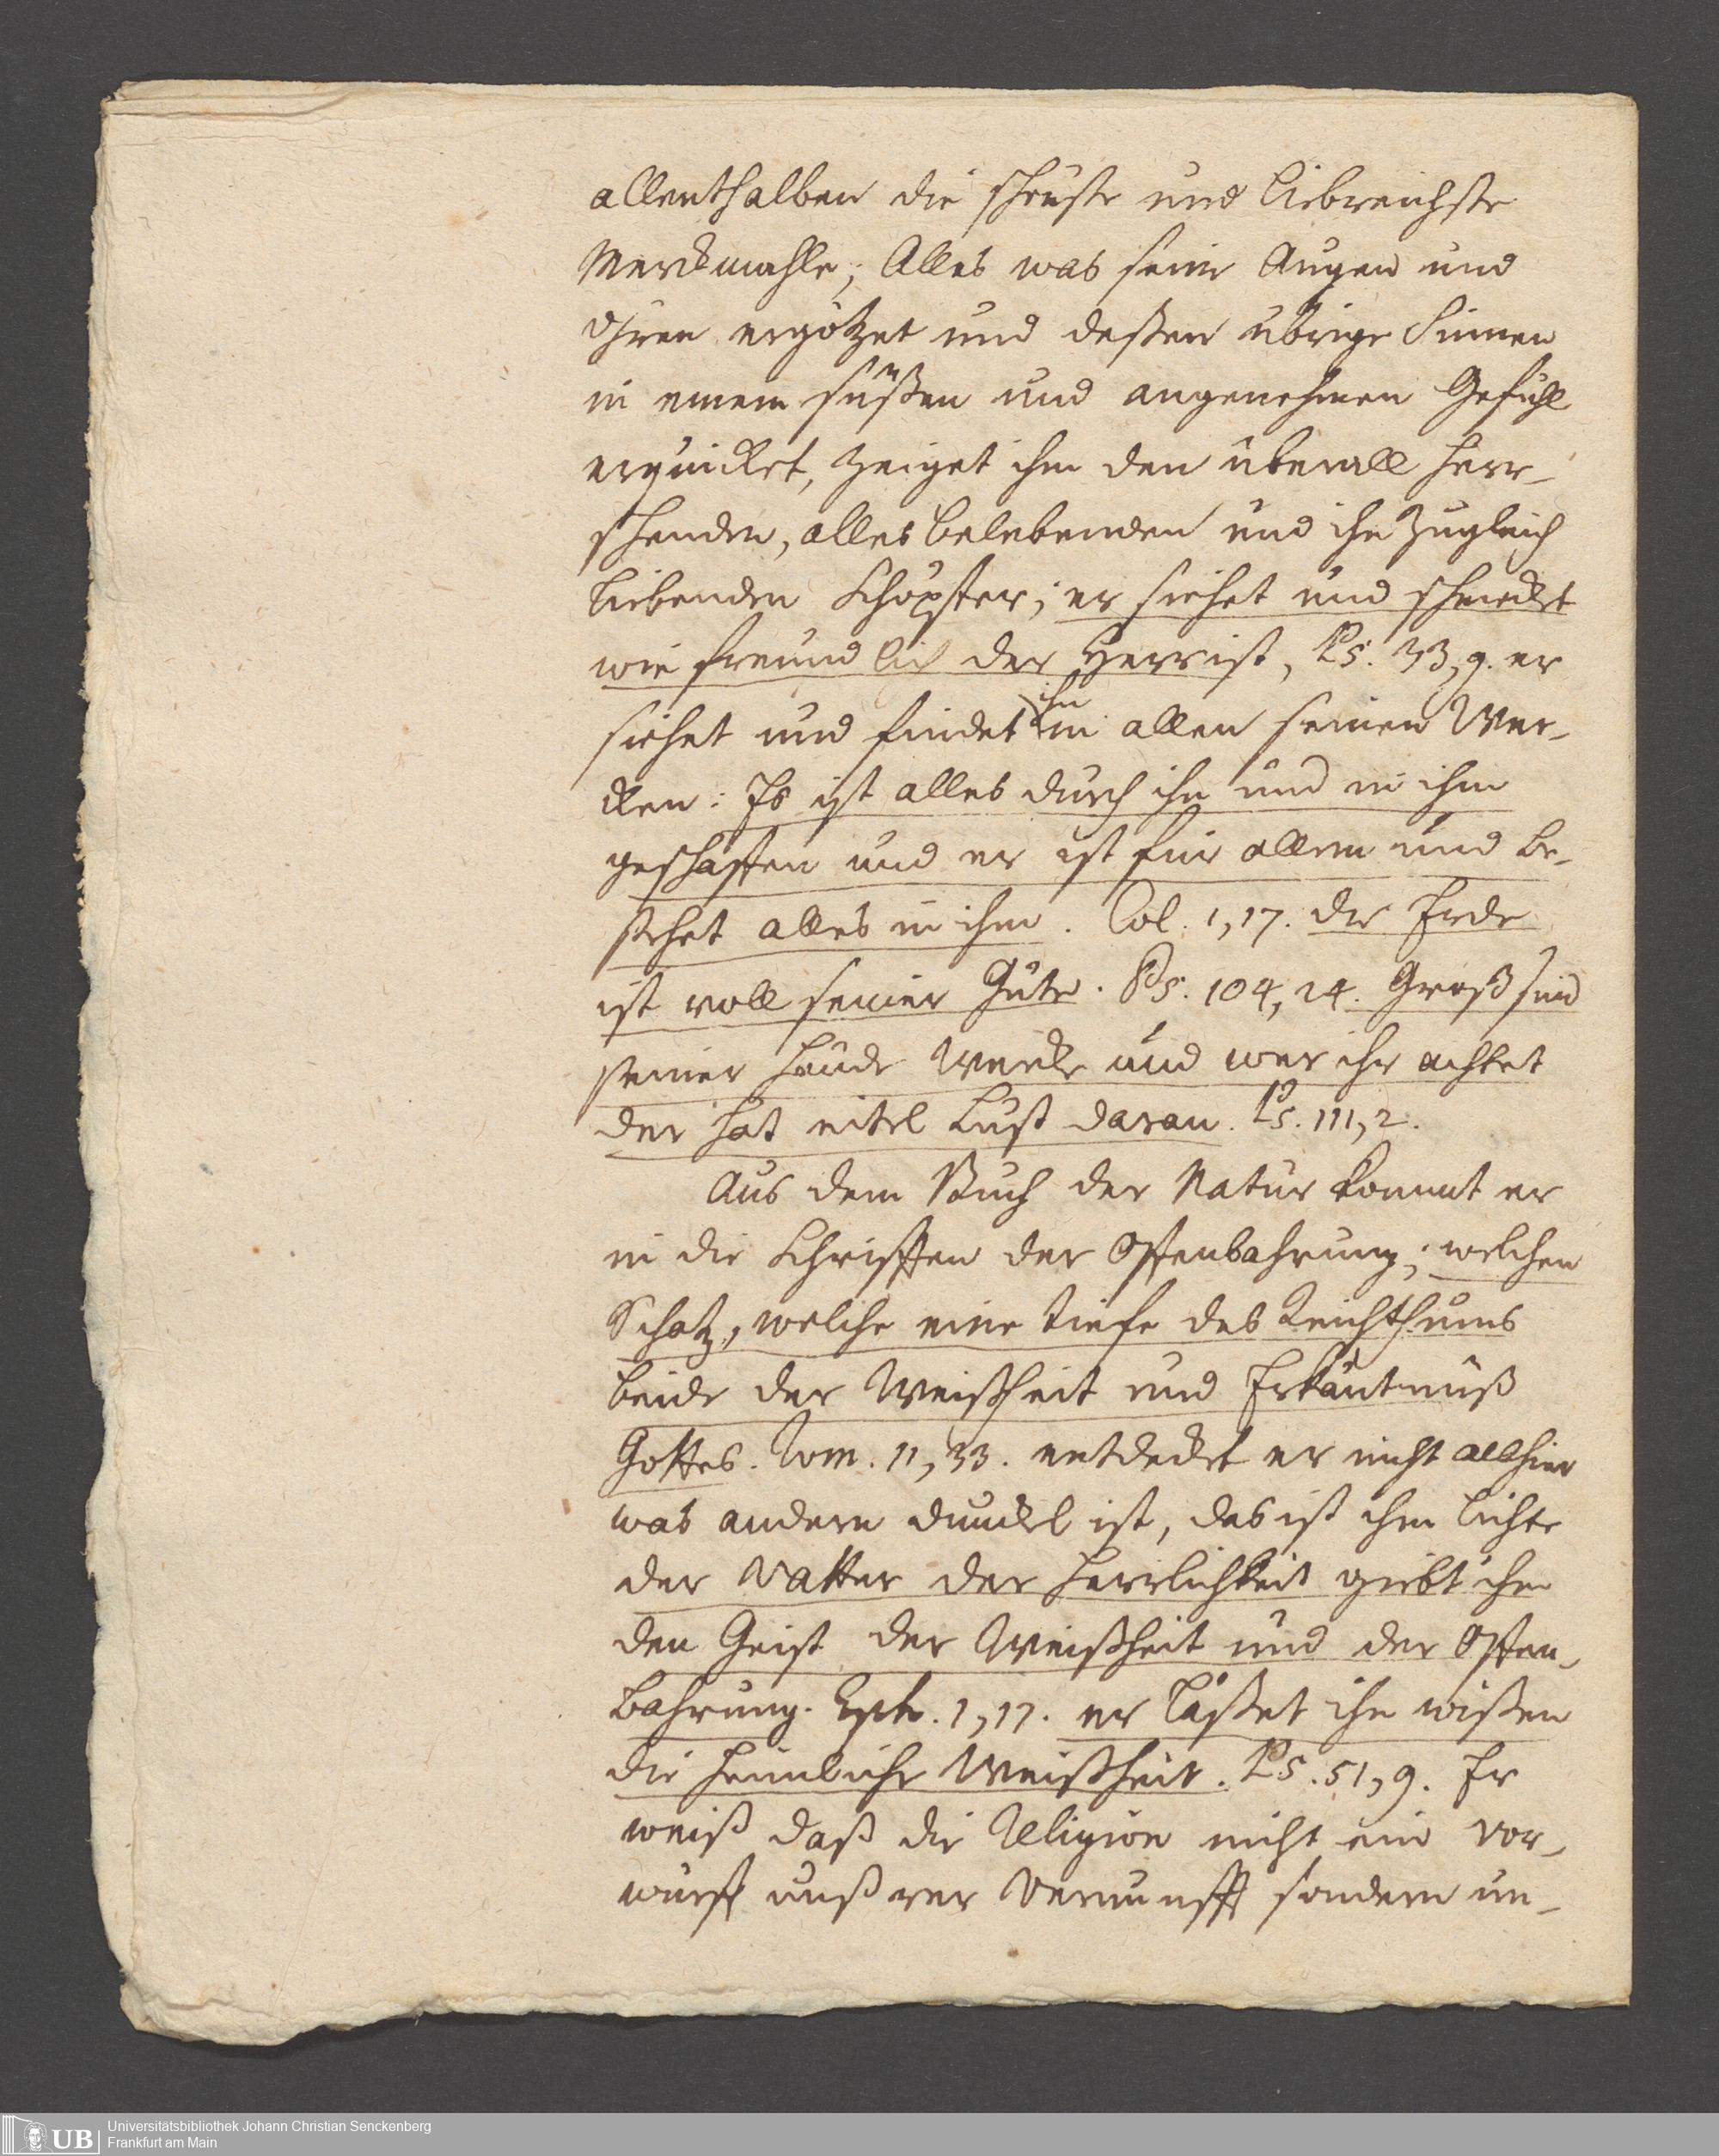 allenthalben die schönste und liebreichste
Merckmahle; Alles was seine Augen und
Ohren ergötzet und deßen übrige Sinnen
in einem süßen und angenehmen Gefühl
erquicket, zeiget ihm den überall herr-
schenden, alles belebenden und ihn zugleich
liebenden Schöpffer; er siehet und schmecket
wie freundlich der Herr ist, Ps. 33,9. er
siehet und findet ihn in allen seinen Wer-
cken: Es ist alles durch ihn und in ihm
geschaffen und er ist für allem und be-
stehet alles in ihm. Col. 1,17. die Erde
ist voll seiner Güte. Ps. 104,24. Groß sind
seiner Hände Wercke und wer ihr achtet
der hat eitel Lust daran. Ps. 111,2.
Aus dem Buch der Natur kommt er
in die Schrifften der Offenbahrung; welchen
Schatz, welche eine Tiefe des Reichthums
beide der Weißheit und Erkäntnüß
Gottes. Rom. 11,33. entdecket er nicht allhier
was andern dunckel ist, das ist ihm lichte
der Vatter der Herrlichkeit giebt ihm
den Geist der Weißheit und der Offen-
bahrung. Eph. 1,17. er läßet ihn wißen
die heimliche Weißheit. Ps. 51,9. Er
weiß daß die Religion nicht ein Vor-
wurff unßrer Vernunfft sondern un-
UB
Universitätsbibliothek Johann Christian Senckenberg
Frankfurt am Main